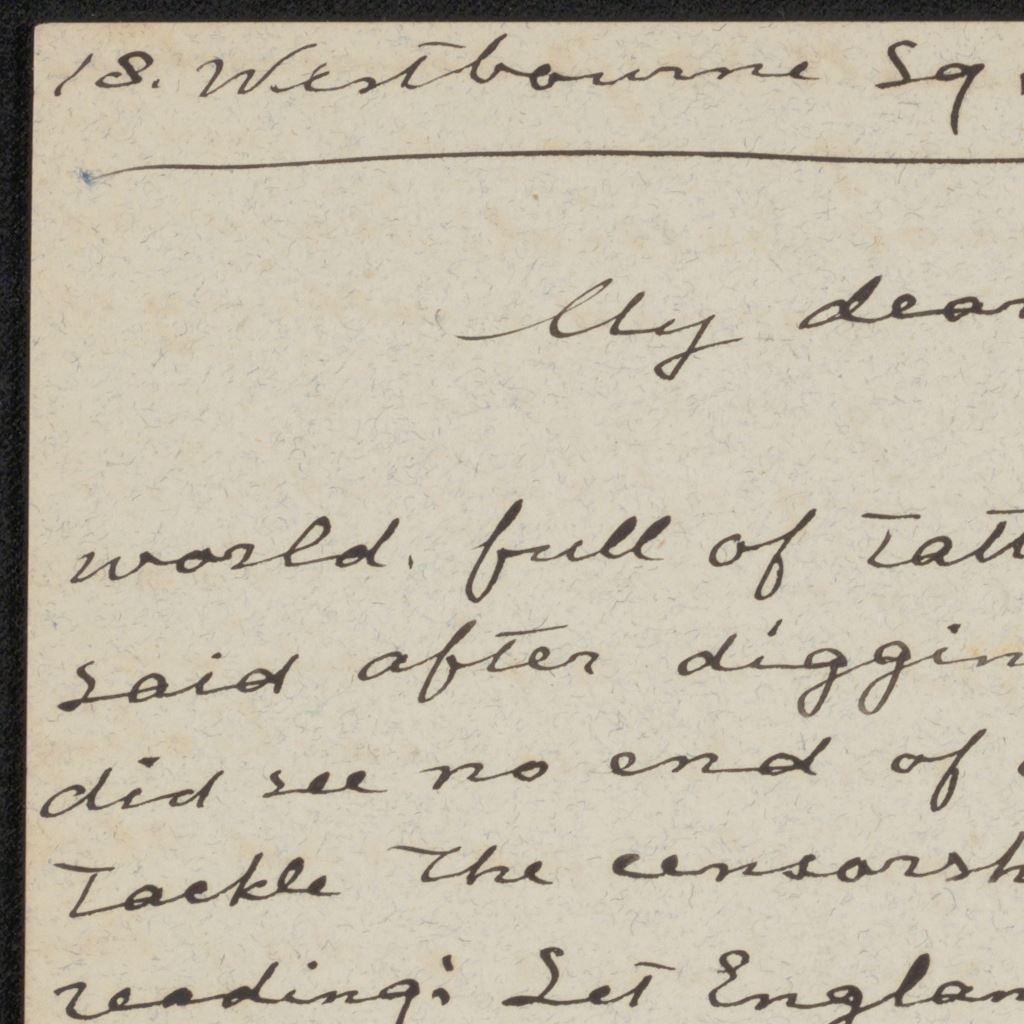 18. Westbourne Sq
My dear
world. full of tatt
said after diggin
did see no end of
tackle the censorsh
reading: Let Englan